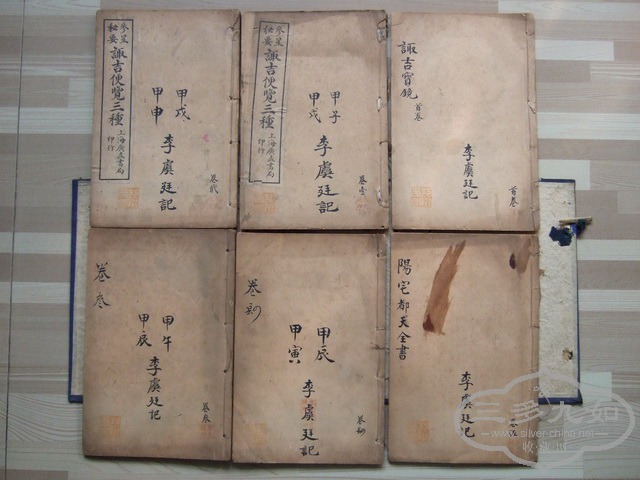 參星
秘要
諏吉便覽三種
上海廣益書局
印行
甲戌
甲申
李虞廷記
卷貳
參星
秘要
諏吉便覽三種
上海廣益書局
印行
甲子
甲戌
李虞廷記
卷壹
諏吉寶鏡
首卷
李虞廷記
首卷
卷叁
甲午
甲辰
李虞廷記
卷叁
卷
甲辰
甲寅
李虞廷記
卷
陽宅都天全書
李虞廷記
三多九如
www.silver-china.net
收藏